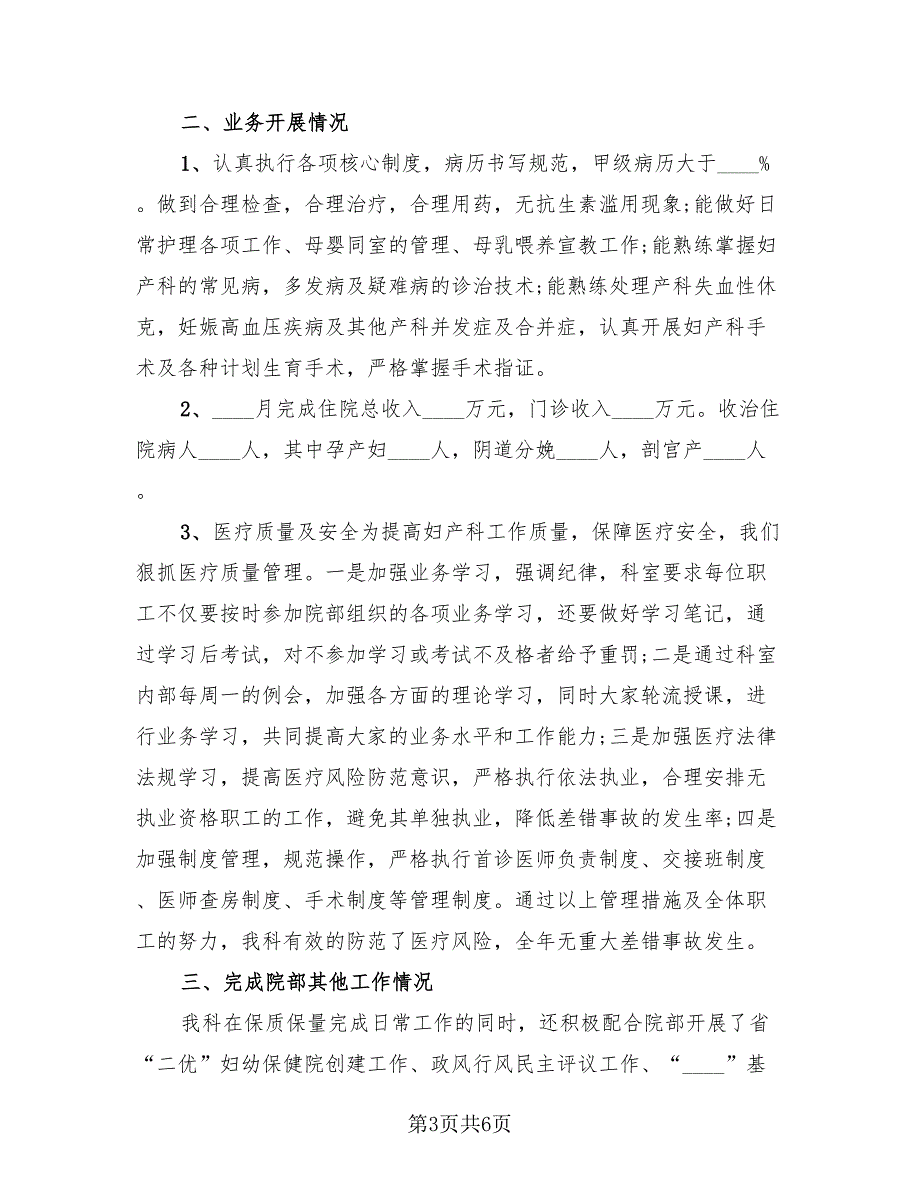 二、业务开展情况
1、认真执行各项核心制度，病历书写规范，甲级病历大于____%
。做到合理检查，合理治疗，合理用药，无抗生素滥用现象;能做好日
常护理各项工作、母婴同室的管理、母乳喂养宣教工作;能熟练掌握妇
产科的常见病，多发病及疑难病的诊治技术;能熟练处理产科失血性休
克，妊娠高血压疾病及其他产科并发症及合并症，认真开展妇产科手
术及各种计划生育手术，严格掌握手术指证。
2、____月完成住院总收入____万元，门诊收入____万元。收治住
院病人____人，其中孕产妇____人，阴道分娩____人，剖宫产____人
。
3、医疗质量及安全为提高妇产科工作质量，保障医疗安全，我们
狠抓医疗质量管理。一是加强业务学习，强调纪律，科室要求每位职
工不仅要按时参加院部组织的各项业务学习，还要做好学习笔记，通
过学习后考试，对不参加学习或考试不及格者给予重罚;二是通过科室
内部每周一的例会，加强各方面的理论学习，同时大家轮流授课，进
行业务学习，共同提高大家的业务水平和工作能力;三是加强医疗法律
法规学习，提高医疗风险防范意识，严格执行依法执业，合理安排无
执业资格职工的工作，避免其单独执业，降低差错事故的发生率;四是
加强制度管理，规范操作，严格执行首诊医师负责制度、交接班制度
、医师查房制度、手术制度等管理制度。通过以上管理措施及全体职
工的努力，我科有效的防范了医疗风险，全年无重大差错事故发生。
三、完成院部其他工作情况
我科在保质保量完成日常工作的同时，还积极配合院部开展了省
“二优”妇幼保健院创建工作、政风行风民主评议工作、“____”基
第3页共6页